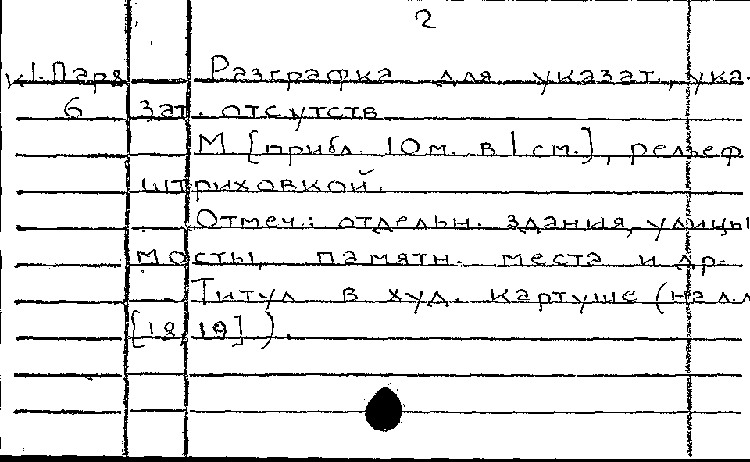 2
к1.Паря Разграфка для указат., ука-
6 зат. отсутств
М [прибл. 10м. в 1 см.], рельеф
штриховкой.
Отмеч.: отдельн. здания, улицы
мосты, памятн. места и др.
Титул в худ. картуше (на лл
[18,19] ).